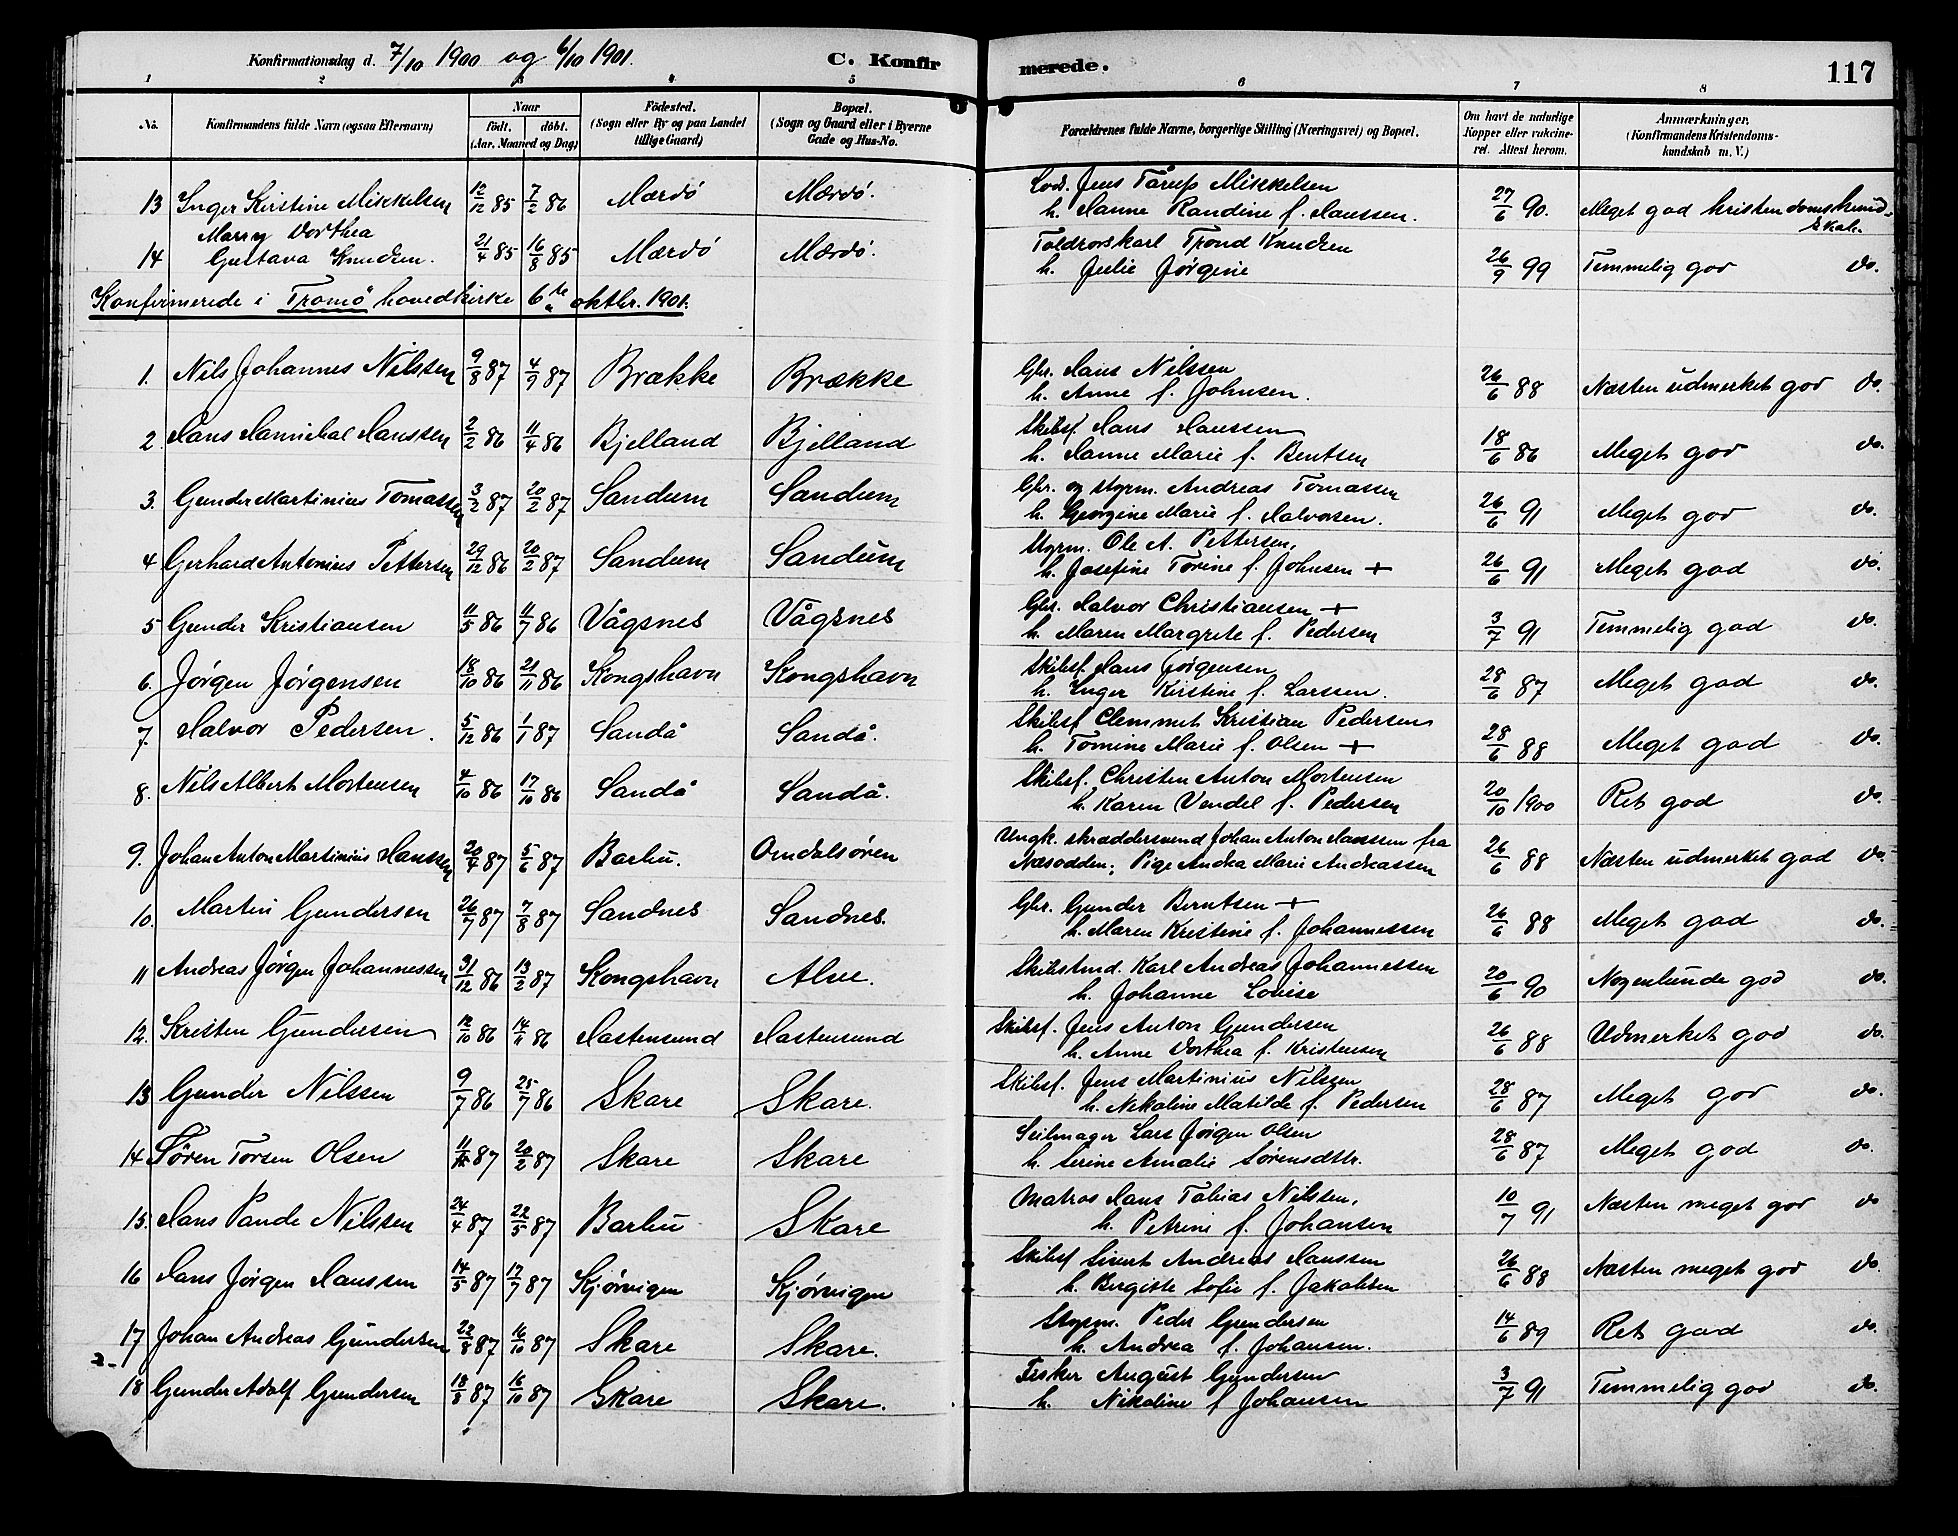 Konfirmationsdag d. 7/10 1900 og 6/10 1901. C. Konfirmerede. 117
1 2 3 4 5 6 7 8
No. Konfirmandens fulde Navn (ogsaa Efternavn) Naar födt. döbt. (Aar, Maaned og Dag) Födested. (Sogn eller By og paa Landet tillige Gaard) Bopæl. (Sogn og Gaard eller i Byerne Gade og Hus-No. Forældrenes fulde Navne, borgerlige Stilling (Næringsvei) og Bopæl. Om havt de naturlige Kopper eller vakcineret. Attest herom. Anmærkninger. (Konfirmandens Kristendomskundskab m. V.)
13 Inger Kirstine Mikkelsen 12/12 85 7/2 86 Mærdö Mærdö. Lods. Jens Tårup Mikkelsen
h. Hanne Randine f. Hanssen. 27/6 90. Meget god kristendomskundskab.
14 Marry Dorthea
Gustava Knudsen. 21/4 85 16/8 85 Mærdö Mærdö. Toldrorskarl Trond Knudsen
h. Julie Jörgine 26/9 99 Temmelig god do.
Konfirmerede i Tromö hovedkirke 6te oktbr. 1901.
1. Nils Johannes Nilssen 9/8 87 4/9 87 Brække Brække Gbr. Hans Nilssen
h. Anne f. Johnsen. 26/6 88 Næsten udmerket god do.
2. Hans Hannibal Hanssen 2/2 86 11/4 86 Bjelland Bjelland Skibsf. Hans Hanssen
h. Hanne Marie f. Bentsen 18/6 86 Meget god do.
3. Gunder Martinius Tomassen 3/2 87 20/2 87 Sandum Sandum Gbr. og styrm. Andreas Tomassen
h. Georgine Marie f. Halvorsen. 26/6 91 Meget god do.
4 Gerhard Antonius Pettersen 29/12 86 20/2 87 Sandum Sandum Styrm. Ole A. Pettersen,
h. Josefine Torine f. Johnsen + 26/6 91 Meget god do.
5 Gunder Kristiansen 11/5 86 11/7 86 Vågsnes Vågsnes Gbr. Halvor Christiansen +
h. Maren Margrete f. Pedersen 3/7 91 Temmelig god do.
6. Jörgen Jörgensen 18/10 86 21/11 86 Kongshavn Kongshavn Skibsf. Hans Jörgensen
h. Inger Kirstine f. Larssen. 28/6 87 Meget god do.
7. Halvor Pedersen. 5/12 86 1/1 87 Sandå Sandå. Skibsf. Clemmet Kristian Pedersen
h. Tomine Marie f. Olsen + 28/6 88 Meget god do.
8. Nils Albert Mortensen 4/10 86 17/10 86 Sandå Sandå. Skibsf. Christen Anton Mortensen
h. Karen Vendel f. Pedersen 20/10 1900 Ret god do.
9. Johan Anton Martinius Hanssen 20/4 87 5/6 87 Barbu. Omdalsören Ungk. skræddersvend Johan Anton Hanssen fra
Næsodden; Pige Andrea Marie Andreassen 26/6 88 Næsten udmerket god do.
10. Martin Gundersen 26/7 87 7/8 87 Sandnes Sandnes. Gbr. Gunder Berntsen +
h. Maren Kristine f. Johannessen 26/6 88 Meget god do.
11 Andreas Jörgen Johannessen 31/12 86 13/2 87 Kongshavn Alve. Skibstmd. Karl Andreas Johannessen
h. Johanne Louise 20/6 90 Nogenlunde god do.
12. Kristen Gundersen 14/11 86 Hastensund Hastensund Skibsf. Jens Anton Gundersen
h. Anne Dorthea f. Kristensen 26/6 88 Udmerket god do.
13 Gunder Nilssen 9/7 86 25/7 86 Skare Skare. Skibsf. Jens Martinius Nilssen
h. Nikoline Matilde f. Pedersen 28/6 87 Meget god do.
14 Sören Torsen Olsen 87 20/2 87 Skare Skare Seilmager Lars Jörgen Olsen
h. Serine Amalie Sörensdtr. 28/6 87 Meget god do.
15. Hans Pande Nilssen 24/4 87 22/5 87 Barbu Skare Matros Hans Tobias Nilssen,
h. Petrine f. Johansen 10/7 91 Næsten meget god do
16 Hans Jörgen Hanssen 14/5 87 17/7 87 Kjörvigen Kjörvigen Skibsf Sivert Andreas Hanssen
h. Birgitte Sofie f. Jakobsen 26/6 88 Næsten meget god do.
17 Johan Andreas Gundersen 22/8 87 16/10 87 Skare Skare. Styrm. Peder Gundersen
h. Andrea f. Johansen. 14/6 89 Ret god do.
18 Gunder Adolf Gundersen 18/8 87 16/10 87 Skare Skare. Fisker August Gundersen
h. Nikoline f Johansen 3/7 91 Temmelig god do.